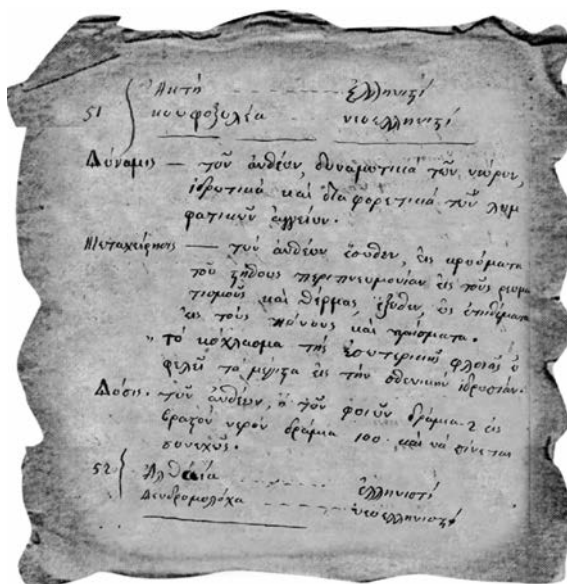 51 { Ἀκτή - - - ἑλληνιστί
κουφοξυλέα - - - νεοελληνιστί
Δύναμις — τῶν ἀνθέων, δυναμωτικά τῶν νεύρων,
ἱδρωτικά καί διαφορετικά τῶν λυμ
φατικῶν ἀγγείων.
Μεταχείρησις — τῶν ἀνθέων ἔσωθεν, εἰς κρυώματα
τοῦ στήθους περιπνευμονίαν εἰς τούς ρευμα
τισμούς καί θέρμας ἔξωθεν, ὡς ἐπιθέματα
εἰς τούς πόνους καί πρίσματα.
" τό κόχλασμα τῆς ἐσωτερικῆς φλοιός ὠ
φελεῖ τά μέγιστα εἰς τήν σθενικήν ὑδρωπίαν.
Δόσις. τῶν ἀνθέων, ἤ τῶν φλοιῶν δράμια 2 εἰς
βραστόν νερόν δράμια 100. καί νά πίνεται
συνεχῶς.
52 { Ἀλθαία - - - ἑλληνιστί
Δενδρομολόχα - - - νεοελληνιστί